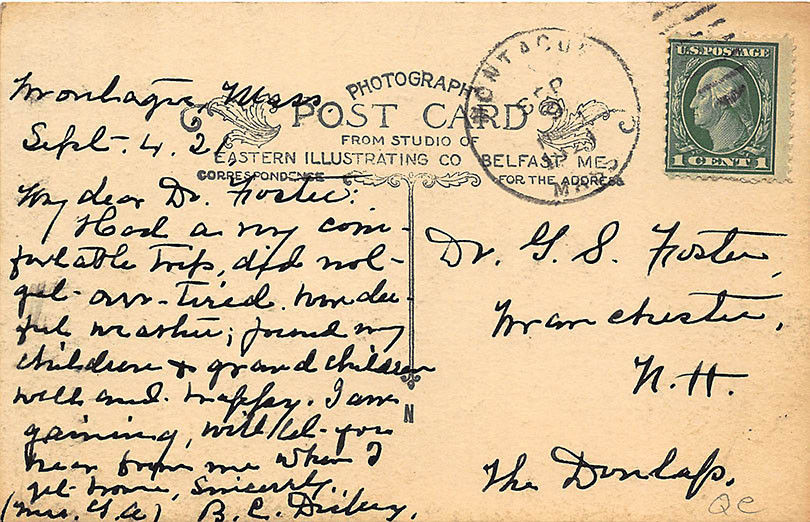 PHOTOGRAPH
POST CARD
FROM STUDIO OF
EASTERN ILLUSTRATING CO BELFAST ME.
CORRESPONDENCE
FOR THE ADDRESS
MONTAGUE
SEP
MASS
U.S. POSTAGE
1 CENT 1
Montague, Mass
Sept. 4. 21
My dear Dr. Foster:
Had a very com-
fortable trip, did not
get over-tired. Wonder-
ful weather; found my
children & grandchildren
well and happy. I am
gaining, will let you
hear from me when I
get home, Sincerely.
(Mrs. G A) B. C.
Dr. G. S. Foster,
Manchester,
N.H.
The Dunlap.
N
QC